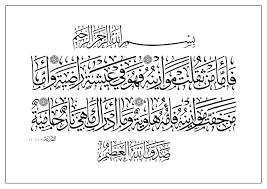 بسم الله الرحمن الرحيم
فأما من ثقلت موازينه فهو في عيشة راضية وأما
من خفت موازينه فأمه هاوية وما أدراك ما هيه نار حامية
صدق الله العظيم